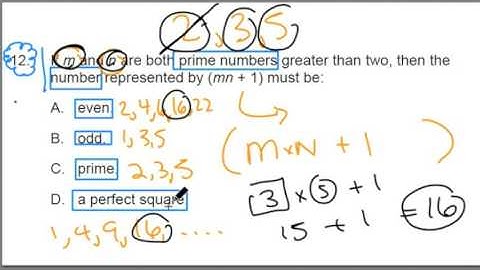 2, 3, 5
12. If m and n are both prime numbers greater than two, then the
number represented by (mn + 1) must be:
A. even 2, 4, 6, 16, 22
B. odd, 1, 3, 5
(m×n + 1)
C. prime, 2, 3, 5
3 × 5 + 1
D. a perfect square
= 16
15 + 1
1, 4, 9, 16, ....